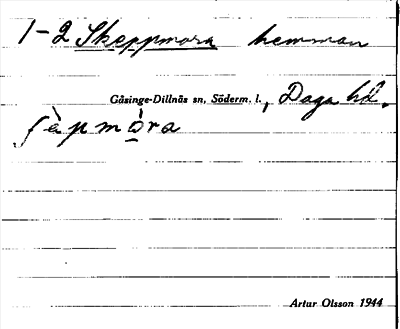 1-2 Skeppmora hemman
Gåsinge-Dillnäs sn, Söderm. l., Daga hd.
ʃèpmò̱ra
Artur Olsson 1944